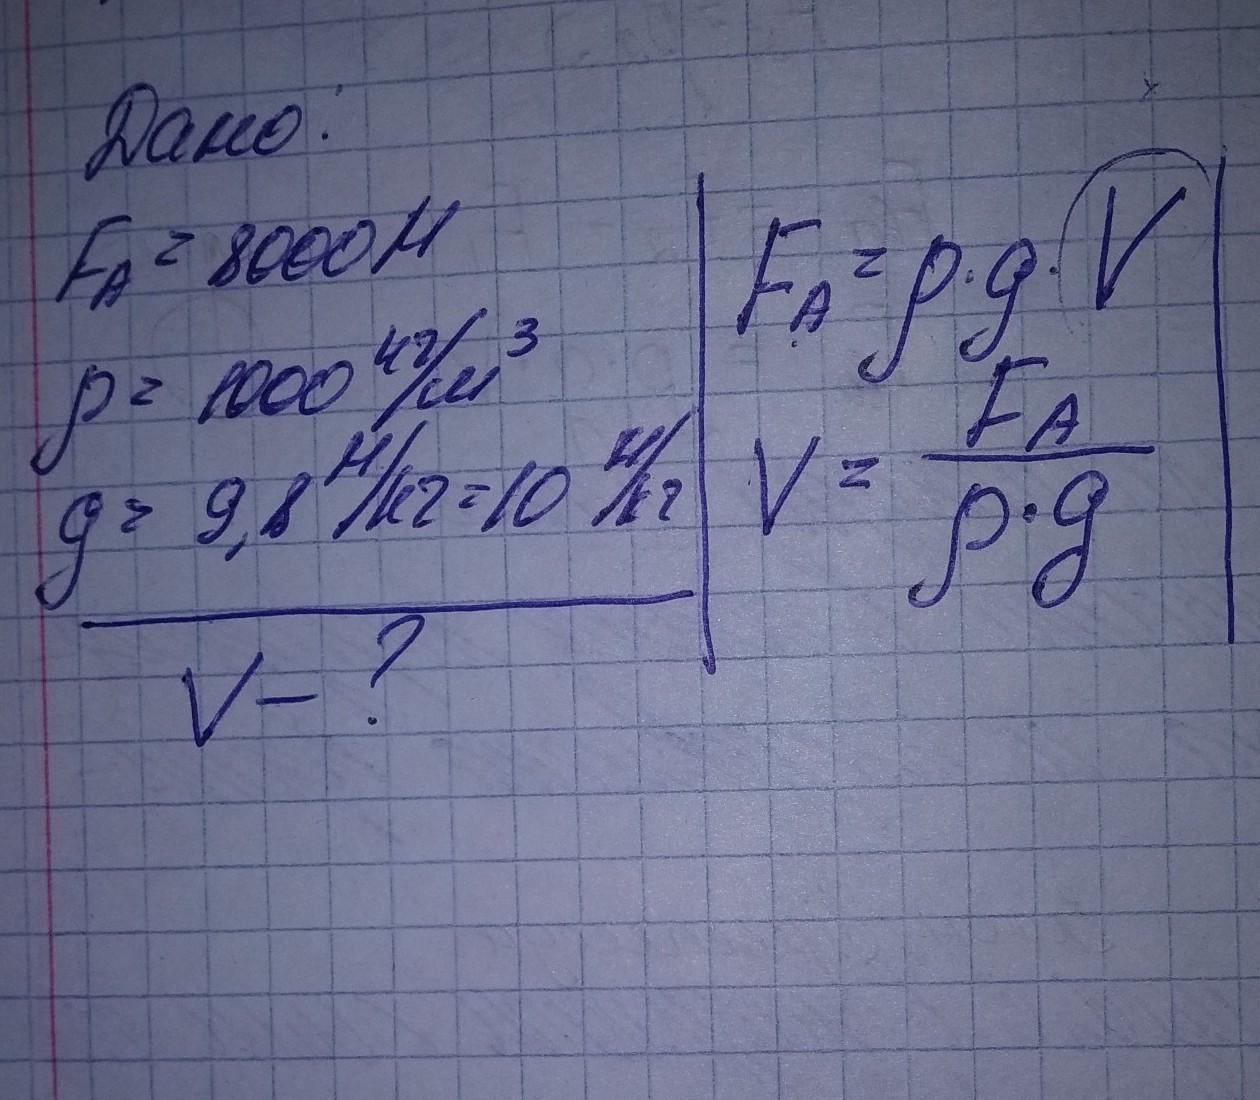 Дано:
F_A = 8000 Н
ρ = 1000 кг/м³
g = 9,8 Н/кг = 10 Н/кг
V – ?
F_A = ρ · g · V
V = F_A / ρ · g